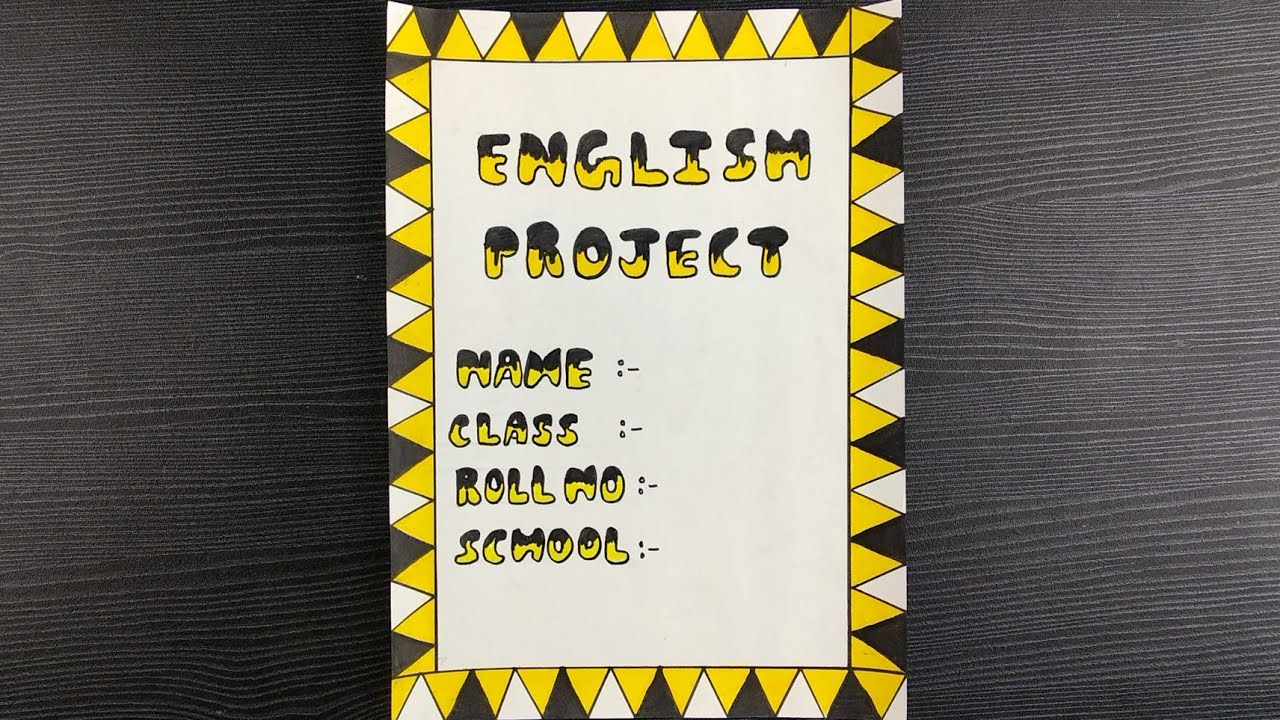 ENGLISH
PROJECT
NAME :-
CLASS :-
ROLL NO :-
SCHOOL :-